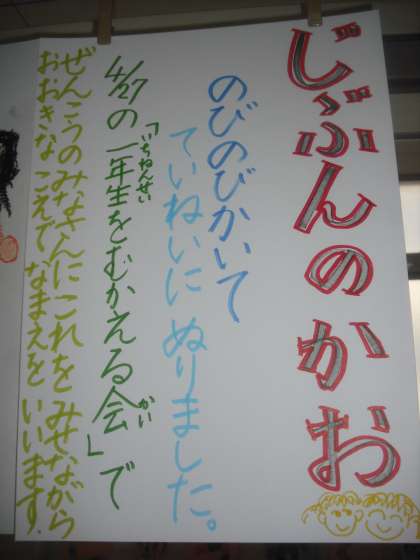 じぶんのかお
のびのびかいて
ていねいに ぬりました。
4/27の「一年生をむかえる会」で
いちねんせい
かい
ぜんこうの みなさんに これを みせながら
おおきな こえで なまえを いいます.